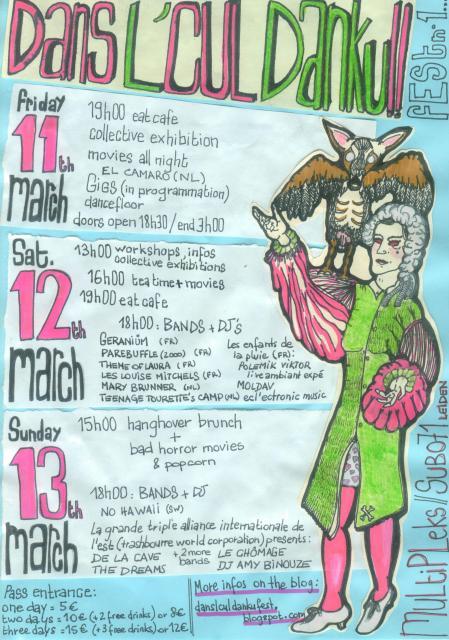 Dans L'Cul Dankul!!
FEST n°1...
Friday
11th
march
19h00 eat cafe
collective exhibition
movies all night
EL CAMARO (NL)
Gigs (in programmation)
dancefloor
doors open 18h30/end 3h00
Sat.
12th
march
13h00 workshops, infos
collective exhibitions
16h00 tea time + movies
19h00 eat cafe
18h00: BANDS + DJ's
GERANIÜM (FR)
PAREBUFFLE (2000) (FR)
THEME OF LAURA (FR)
LES LOUISE MITCHELS (FR)
MARY BRUNNER (NL)
TEENAGE TOURETTE'S CAMP (NL)
Les enfants de
la pluie (FR):
POLEMIK VIKTOR
live ambiant expé
MOLDAV
ecl'ectronic music
Sunday
13th
march
15h00 hanghover brunch
+
bad horror movies
& popcorn
18h00: BANDS + DJ
NO HAWAII (SW)
La grande triple alliance internationale de
l'est (trashbourre world corporation) presents:
DE LA CAVE
THE DREAMS
+ 2 more
bands
LE CHÔMAGE
DJ AMY BINOUZE
MULTIPLeks // SUB071 LEIDEN
Pass entrance:
one day = 5€
two days = 10€ (+2 free drinks) or 8€
three days = 15€ (+3 free drinks) or 12€
More infos on the blog:
danslculdankufest.
blogspot.com